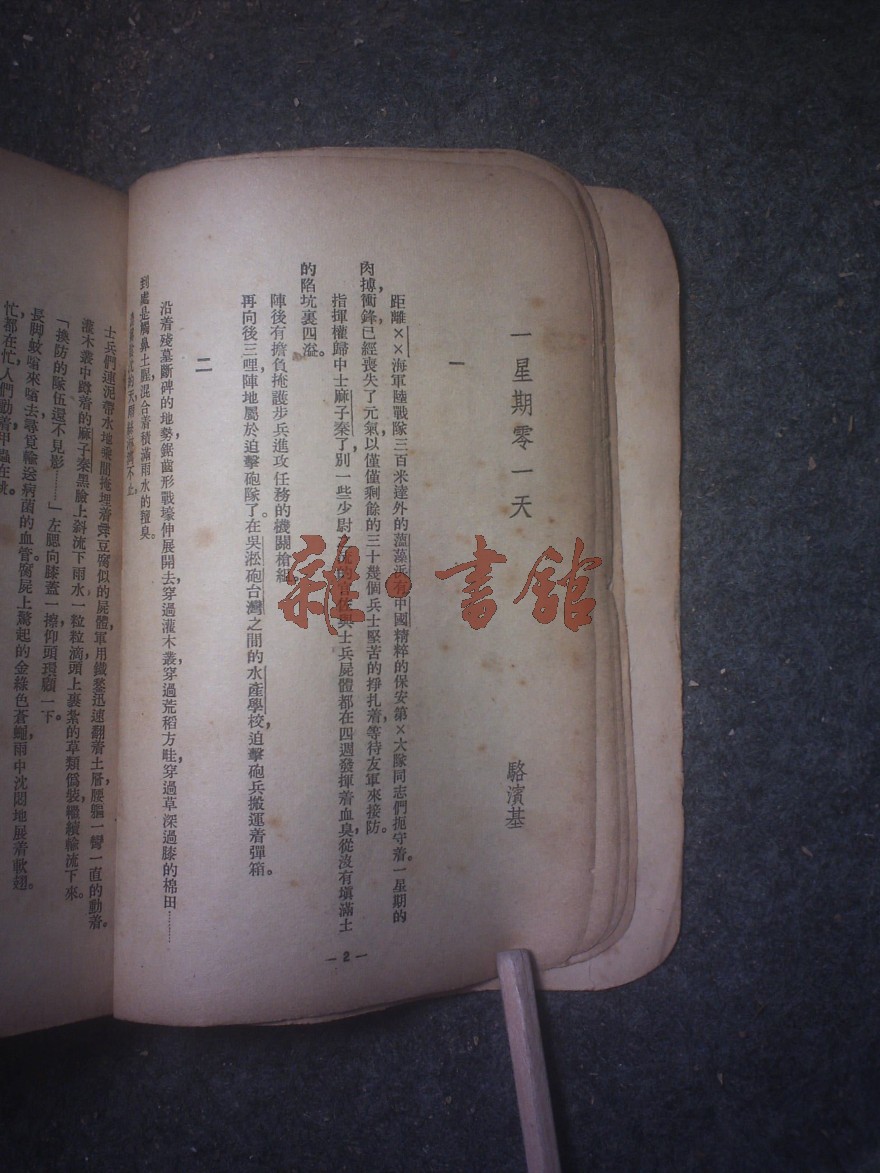 一星期零一天
駱濱基
一
距離××海軍陸戰隊三百米達外的薀藻浜有中國精粹的保安第×大隊同志們扼守着。一星期的
肉搏，衝鋒，已經喪失了元氣，以僅僅剩餘的三十幾個兵士堅苦的掙扎着，等待友軍來接防。
指揮權歸中士麻子秦了，別一些少尉 官佐與士兵屍體都在四週發揮着血臭，從沒有填滿土
的陷坑裏四溢。
陣後有擔負掩護步兵進攻任務的機關槍組。
再向後三哩，陣地屬於迫擊砲隊了。在吳淞砲台灣之間的水產學校，迫擊砲兵搬運着彈箱。
二
沿着殘墓斷碑的地勢，鋸齒形戰壕伸展開去，穿過灌木叢，穿過荒稻方畦，穿過草深過膝的棉田………
到處是觸鼻土腥，混合着積滿雨水的羶臭。
士兵們連泥帶水地乘間掩埋着 豆腐似的屍體，軍用鐵鍫迅速翻着土層，腰軀一彎一直的動着。
灌木叢中蹲着的麻子秦，黑臉上斜流下雨水，一粒粒滴，頭上裹紮的草類僞裝繼續輸流下來。
「換防的隊伍還不見影……」左腮向膝蓋一擦，仰頭環顧一下。
長脚蚊嗡來嗡去尋覓輸送病菌的血管。腐屍上驚起的金綠色蒼蠅，雨中沈悶地展着軟翅。
忙都在忙，人們動着，甲蟲在 。
—2—
雜·書館